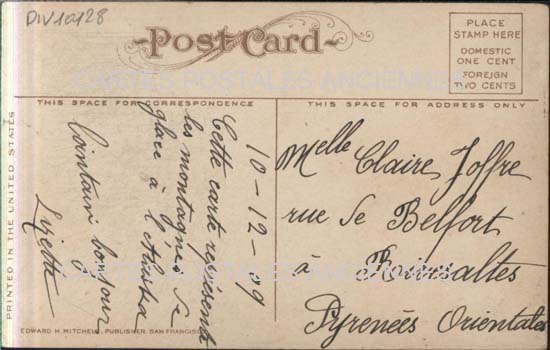 DIV10428
Post Card
PLACE
STAMP HERE
DOMESTIC
ONE CENT
FOREIGN
TWO CENTS
CARTES POSTALES ANCIENNES
THIS SPACE FOR CORRESPONDENCE
THIS SPACE FOR ADDRESS ONLY
10-12-09
Cette carte représente
les montagnes de
glace à l'Alaska
Lointain bonjour
Lisette
Melle Claire Joffre
rue de Belfort
à Rivesaltes
Pyrenées Orientales
CARTES POSTALES ANCIENNES
PRINTED IN THE UNITED STATES
EDWARD H. MITCHELL, PUBLISHER, SAN FRANCISCO